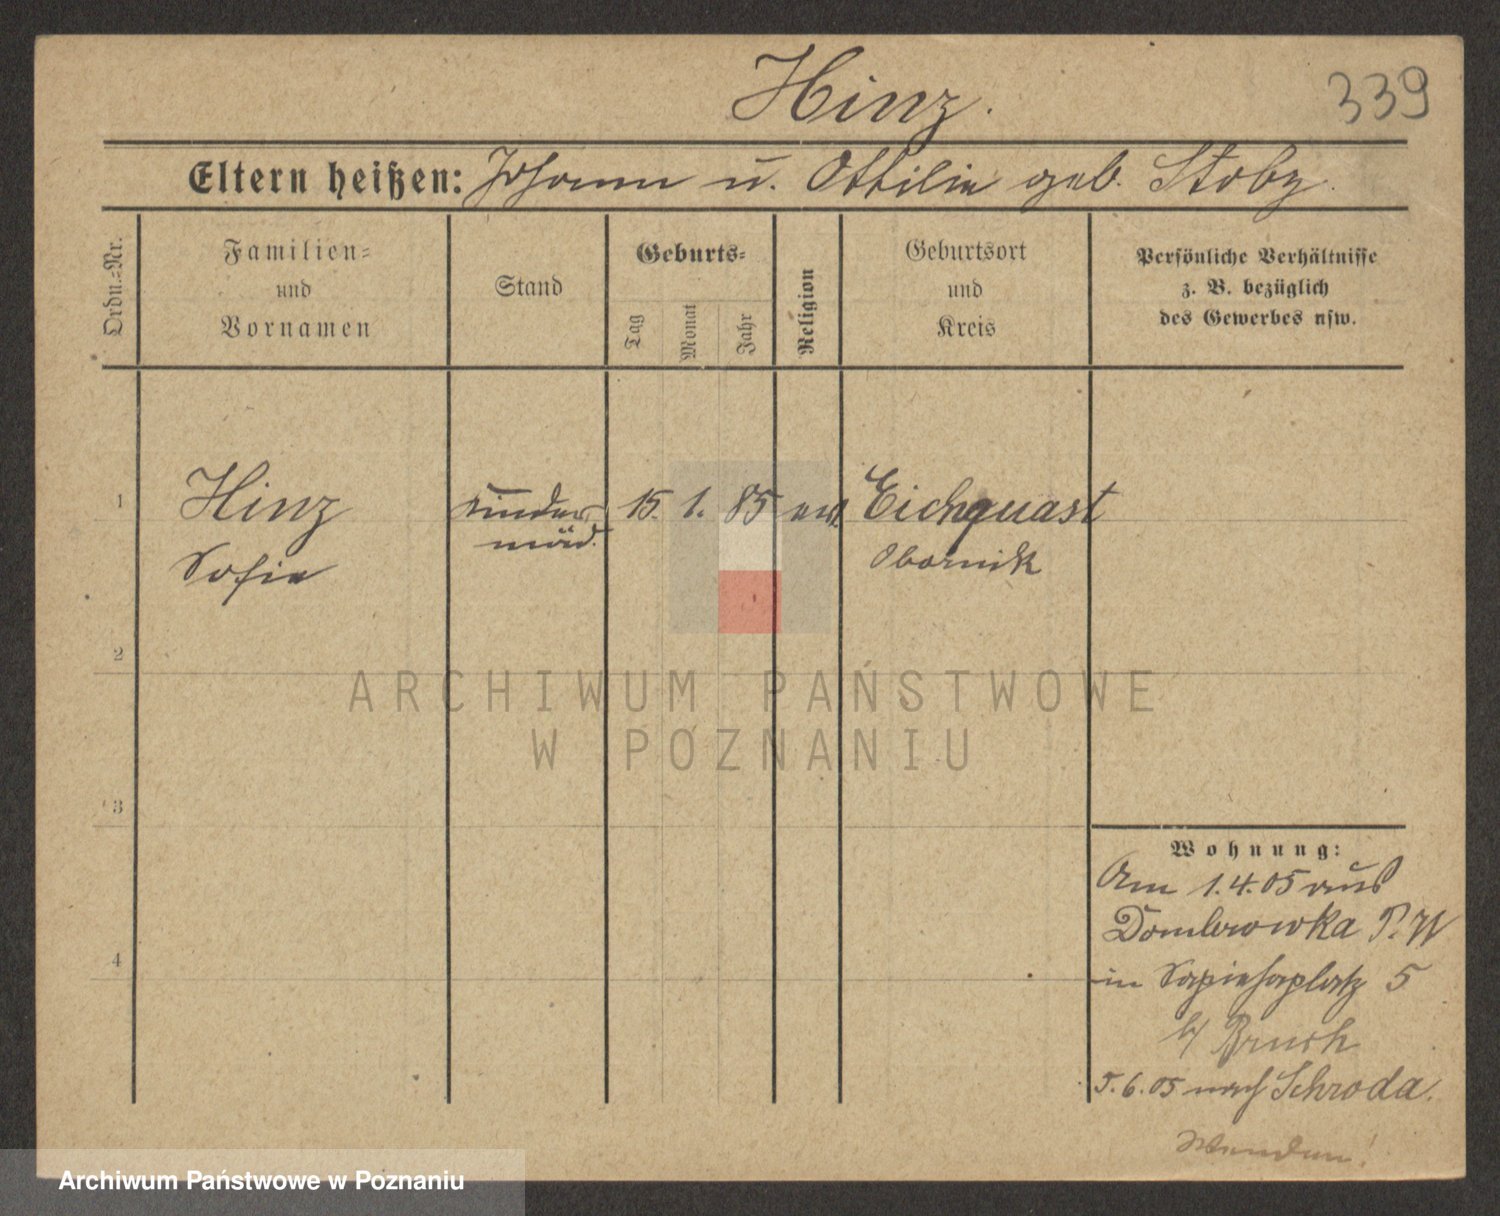 Hinz.
339
Eltern heißen: Johann u. Ottilie geb. Stoby.
Ordn.=Nr.
Familien=
und
Vornamen
Stand
Geburts=
Tag
Monat
Jahr
Religion
Geburtsort
und
Kreis
Persönliche Verhältnisse
z. B. bezüglich
des Gewerbes usw.
1
Hinz Kinder 15. 1. 85 ev. Eichquast
Sofie mäd. Obornik
2
ARCHIWUM PAŃSTWOWE
W POZNANIU
3
Wohnung:
Am 1.4.05 aus
Dombrowka P. W
4
in Sapiehaplatz 5
b/ Bruch
5.6.05 nach Schroda.
Wenden!
Archiwum Państwowe w Poznaniu